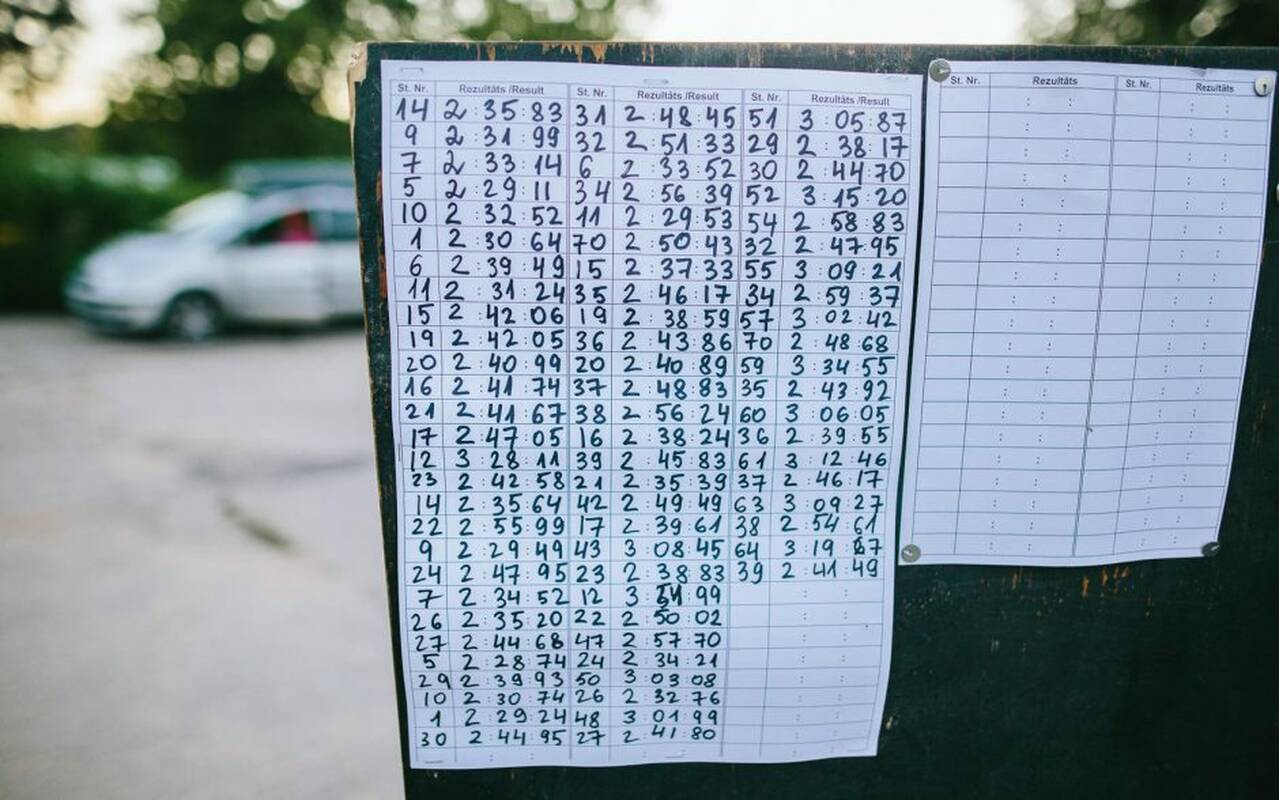 St. Nr. Rezultāts /Result St. Nr. Rezultāts /Result St. Nr. Rezultāts /Result
14 2 : 35 : 83 31 2 : 48 : 45 51 3 : 05 : 87
9 2 : 31 : 99 32 2 : 51 : 33 29 2 : 38 : 17
7 2 : 33 : 14 6 2 : 33 : 52 30 2 : 44 : 70
5 2 : 29 : 11 34 2 : 56 : 39 52 3 : 15 : 20
10 2 : 32 : 52 11 2 : 29 : 53 54 2 : 58 : 83
1 2 : 30 : 64 70 2 : 50 : 43 32 2 : 47 : 95
6 2 : 39 : 49 15 2 : 37 : 33 55 3 : 09 : 21
11 2 : 31 : 24 35 2 : 46 : 17 34 2 : 59 : 37
15 2 : 42 : 06 19 2 : 38 : 59 57 3 : 02 : 42
19 2 : 42 : 05 36 2 : 43 : 86 70 2 : 48 : 68
20 2 : 40 : 99 20 2 : 40 : 89 59 3 : 34 : 55
16 2 : 41 : 74 37 2 : 48 : 83 35 2 : 43 : 92
21 2 : 41 : 67 38 2 : 56 : 24 60 3 : 06 : 05
17 2 : 47 : 05 16 2 : 38 : 24 36 2 : 39 : 55
12 3 : 28 : 11 39 2 : 45 : 83 61 3 : 12 : 46
23 2 : 42 : 58 21 2 : 35 : 39 37 2 : 46 : 17
14 2 : 35 : 64 42 2 : 49 : 49 63 3 : 09 : 27
22 2 : 55 : 99 17 2 : 39 : 61 38 2 : 54 : 61
9 2 : 29 : 49 43 3 : 08 : 45 64 3 : 19 :
24 2 : 47 : 95 23 2 : 38 : 83 39 2 : 41 : 49
7 2 : 34 : 52 12 3 : : 99
26 2 : 35 : 20 22 2 : 50 : 02
27 2 : 44 : 68 47 2 : 57 : 70
5 2 : 28 : 74 24 2 : 34 : 21
29 2 : 39 : 93 50 3 : 03 : 08
10 2 : 30 : 74 26 2 : 32 : 76
1 2 : 29 : 24 48 3 : 01 : 99
30 2 : 44 : 95 27 2 : 41 : 80
St. Nr. Rezultāts St. Nr. Rezultāts